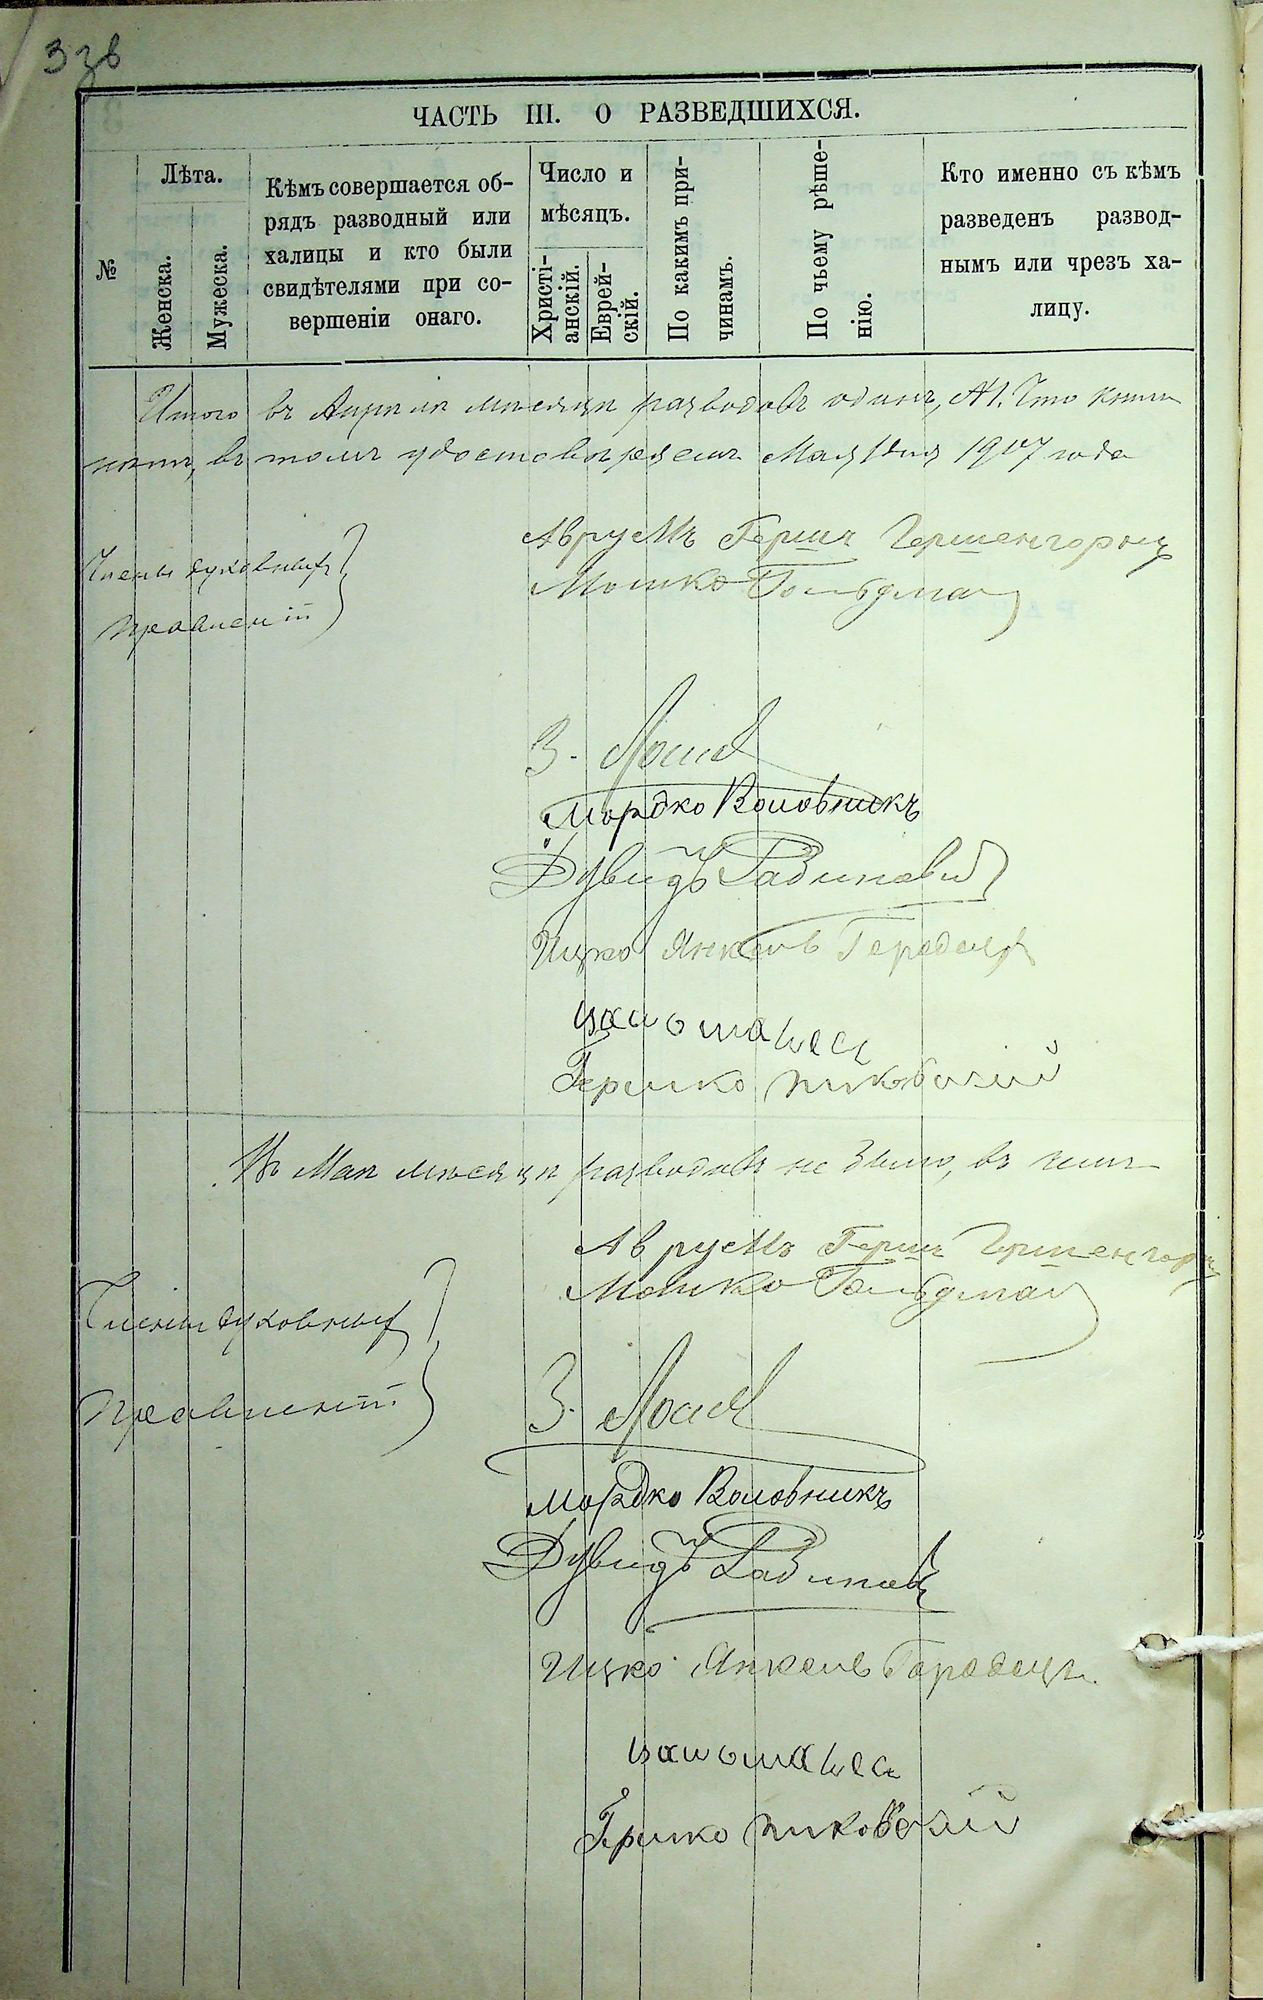 ззв
ЧАСТЬ III. О РАЗВЕДШИХСЯ.
№
Лѣта.
Женска.
Мужеска.
Кѣмъ совершается об-
рядъ разводный или
халицы и кто были
свидѣтелями при со-
вершеніи онаго.
Число и
мѣсяцъ.
Христі-
анскій.
Еврей-
скій.
По какимъ при-
чинамъ.
По чьему рѣше-
нію.
Кто именно съ кѣмъ
разведенъ развод-
нымъ или чрезъ ха-
лицу.
Итого въ Апрѣлѣ мѣсяцѣ разводовъ одинъ, №1. Что
въ томъ удостовѣряемъ Мая 1 дня 1907 года
Члены духовныхъ
правленій
Аврумъ Гершъ Гершенгорнъ
Мошко Гольдман
З.
Мордко Воловникъ
Дувидъ Рабинович
Ицко Янкель Городецк
Гершко Пиковский
Въ Маѣ мѣсяцѣ разводовъ не было, въ чемъ
Аврумъ Гершъ Гершенгорнъ
Мошко Гольдман
Члены духовныхъ
правленій
З.
Мордко Воловникъ
Дувидъ Рабинов
Ицко Янкель Городецк
Гершко Пиковский